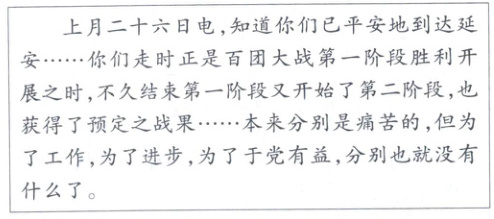 上月二十六日电,知道你们已平安地到达延
安……你们走时正是百团大战第一阶段胜利开
展之时,不久结束第一阶段又开始了第二阶段,也
获得了预定之战果……本来分别是痛苦的,但为
了工作,为了进步,为了于党有益,分别也就没有
什么了。